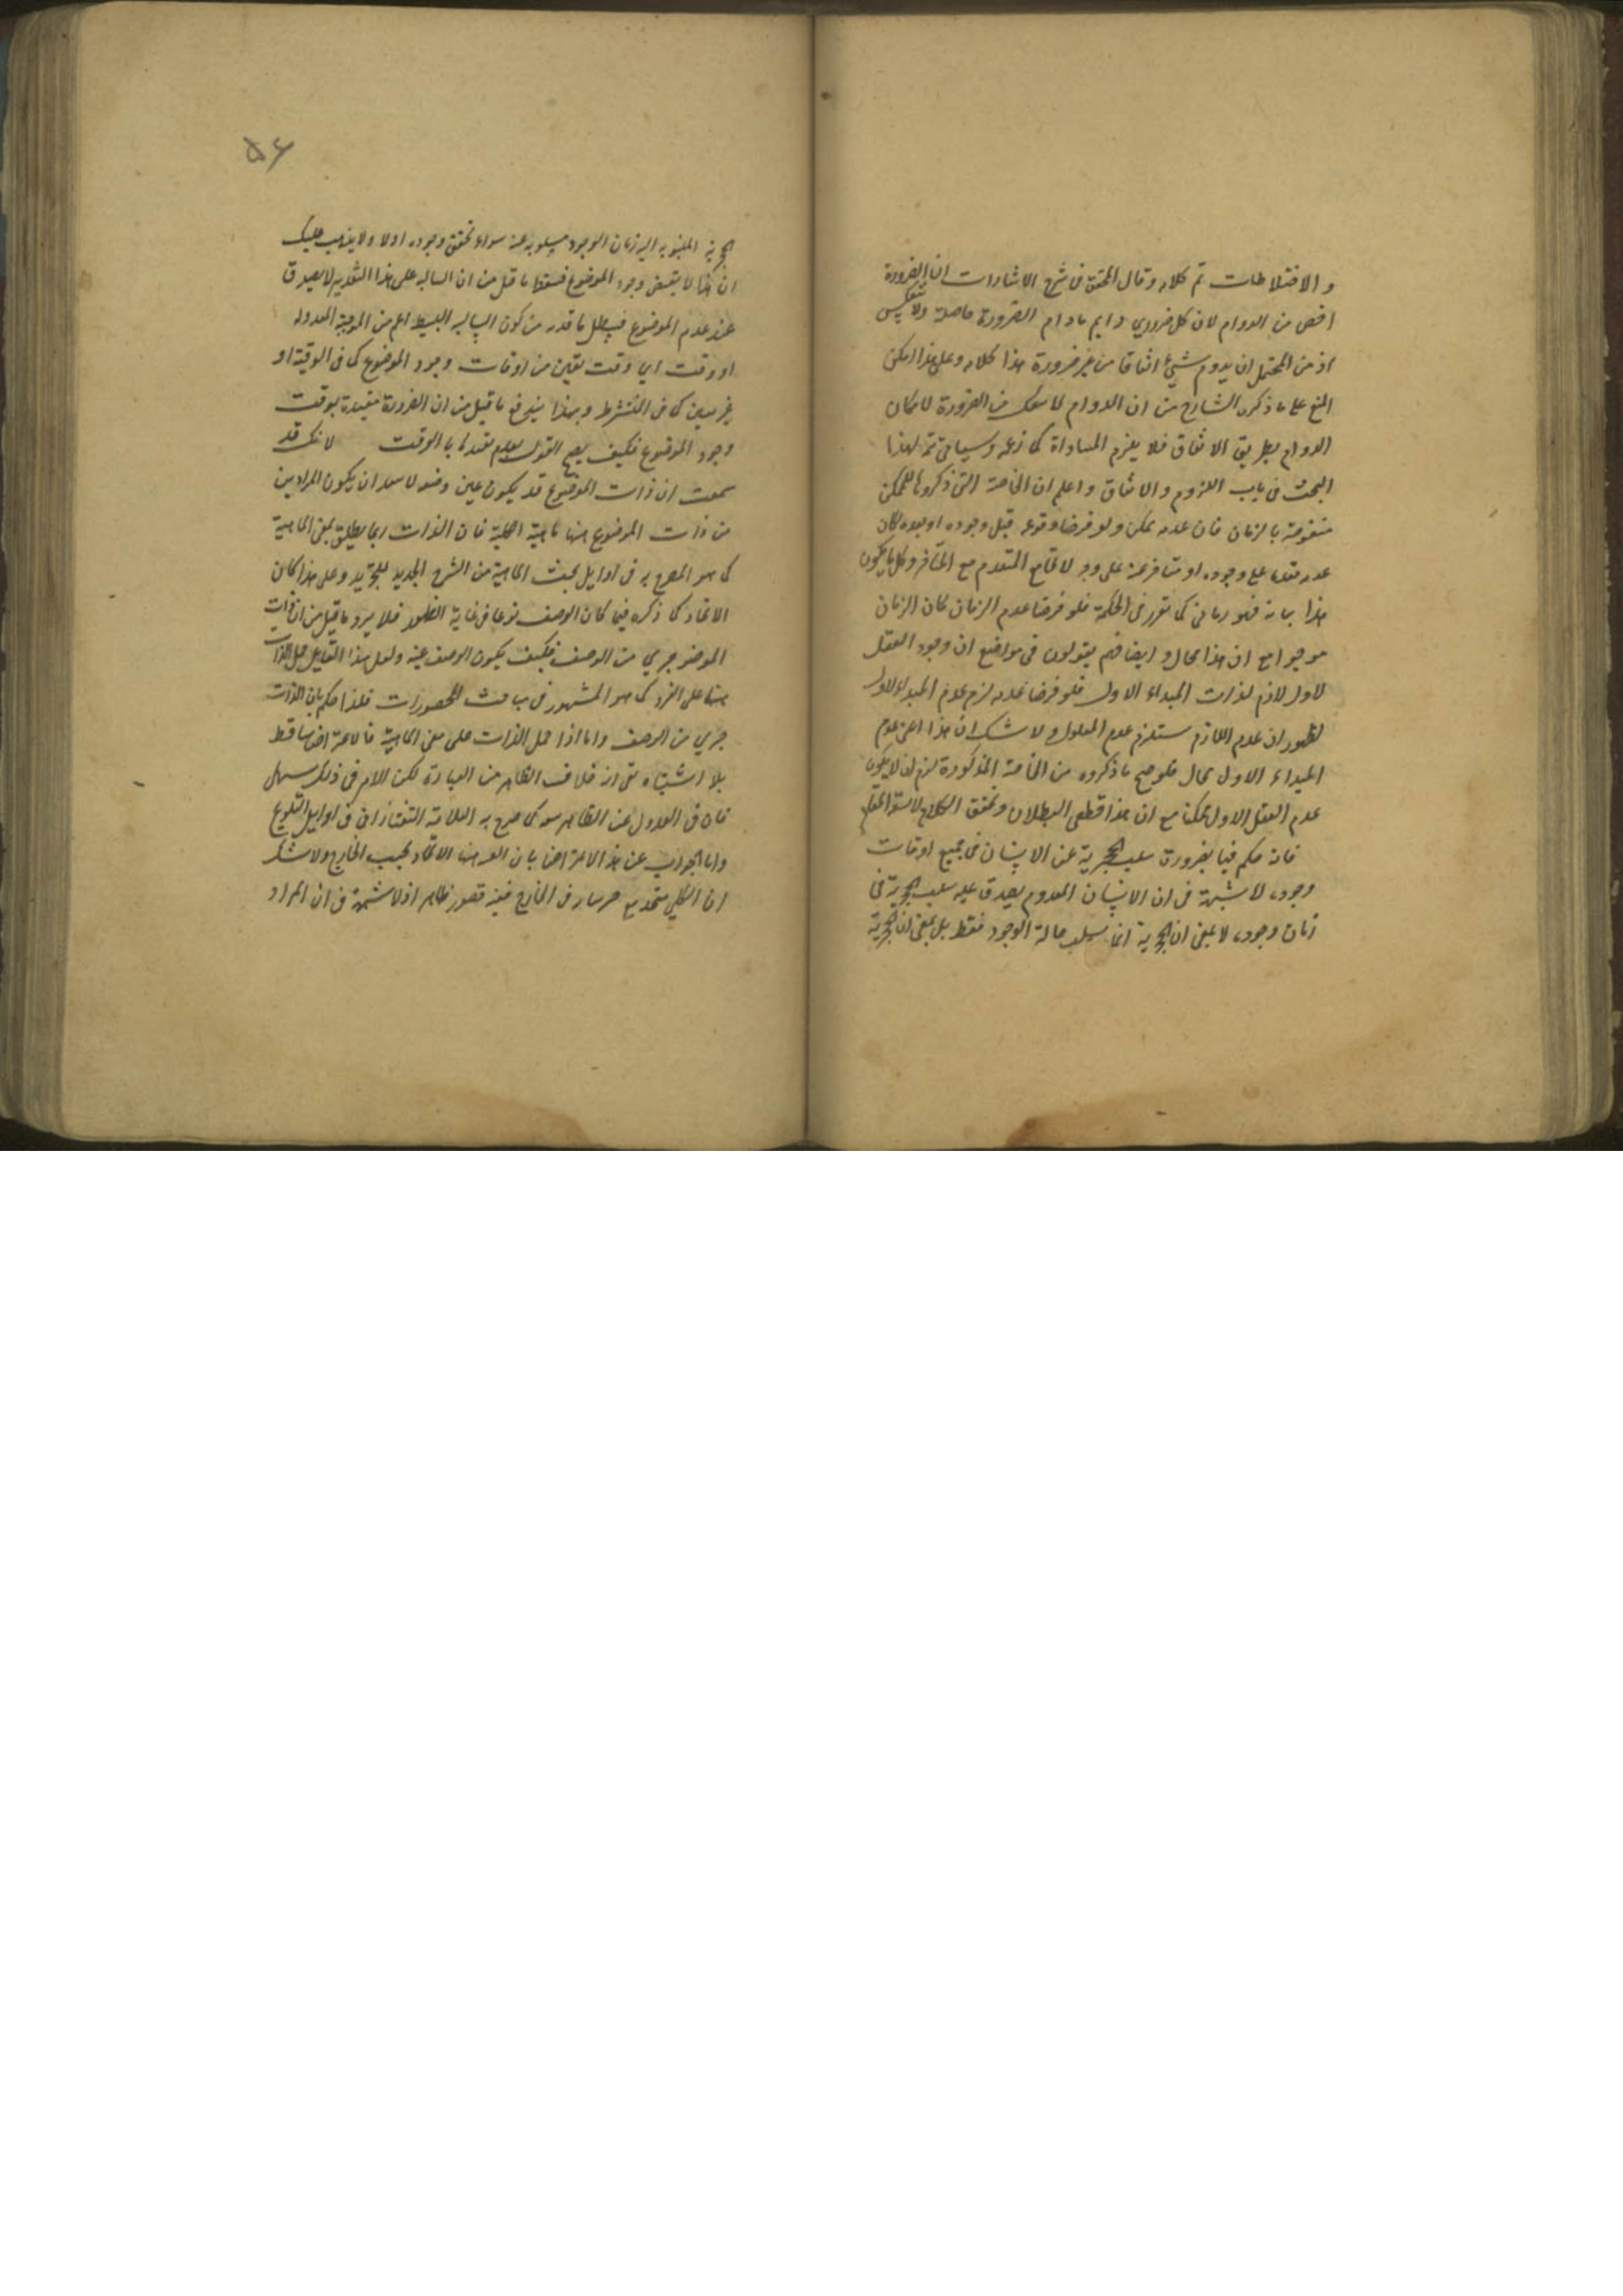 و الاختلاطات تم كلامه وقال المحقق فى شرح الاشارات ان الضرورة
اخص من الدوام لان كل ضروري دايم مادام الضرورة حاصلة ولا ينعكس
اذ من المحتمل ان يدوم شيئ اتفاقا من غير ضرورة هذا كلامه وعلى هذا امكن
المنع على ما ذكره الشارح من ان الدوام لا ينفك عن الضرورة لامكان
الدوام بطريق الاتفاق فلا يلزم المساواة كما زعمه وسياتى تتمة لهذا
البحث فى باب اللزوم والاتفاق واعلم ان الخاصة التى ذكروها للممكن
منقوضة بالزمان فان عدمه ممكن ولو فرضنا وقوعه قبل وجوده او بعده لكان
عدمه متقدما على وجوده او متاخرا عنه على وجه لا يجامع المتقدم مع المتأخر وكل ما يكون
هذا شانه فهو زمانى كما تقرر فى الحكمة فلو فرضنا عدم الزمان كان الزمان
موجودا مع ان هذا محال وايضا فهم يقولون فى مواضع ان وجود العقل
لاول لازم لذات المبداء الاول فلو فرضنا عدمه لزم عدم المبداء الاول
لظهور ان عدم اللازم يستلزم عدم الملزوم ولا شك ان هذا اعنى عدم
المبداء الاول محال فلو صح ما ذكروه من الخاصة المذكورة لزم ان لا يكون
عدم العقل الاول ممكنا مع ان هذا قطعى البطلان وتحقق الكلام لا يسعه المقام
فانه حكم فيها بضرورة سلب الحجرية عن الانسان فى جميع اوقات
وجوده لا شبهة فى ان الانسان المعدوم يصدق عليه سلب الحجرية فى
زمان وجوده لا بمعنى ان الحجرية انما يسلب حالة الوجود فقط بل بمعنى ان الحجرية
۵۶
الحجرية المنسوبة الى زمان الوجود مسلوبة عنه سواء تحقق وجوده اولا ولا يذهب عليك
ان هذا لا يقتضى وجود الموضوع فسقط ما قيل من ان السالبة على هذا التقدير لا يصدق
عند عدم الموضوع فيبطل ما قدره من كون السالبه البسيطه اعم من الموجبة المعدوله
او وقت اي وقت معين من اوقات وجود الموضوع كما فى الوقتية او
غير معين كما فى المنتشرة وبهذا يندفع ما قيل من ان الضرورة مقيدة بوقت
وجود الموضوع فكيف يصح القول بعدم تقيدها بالوقت لانك قد
سمعت ان ذات الموضوع قد يكون عين وصفه لا يبعد ان يكون المراد من
من ذات الموضوع هنا ماهية اصلية فان الذات ربما يطلق بمعنى الماهية
كما هو المصرح به فى اوايل بحث الماهية من الشرح الجديد للتجريد وعلى هذا كان
الاتحاد كما ذكره فيما كان الوصف نوعا فى غاية الظهور فلا يرد ما قيل من ان ذات
الموضوع جزئي من الوصف فكيف يكون الوصف عينه ولعل هذا القايل حمل الذات
هنا على الفرد كما هو المشهور فى مباحث المحصورات فلذا حكم بان الذات
جزئي من الوصف واما اذا حمل الذات على معنى الماهية فالاعتراض ساقط
بلا اشتباه بقى انه خلاف الظاهر من العبارة لكن الامر فى ذلك سهل
فان فى العدول عن الظاهر سعة كما صرح به العلامة التفتازانى فى اوايل التلويح
واما الجواب عن هذا الاعتراض بان المراد هنا الاتحاد بحسب الخارج ولا شك
ان الكلى متحد مع جزئياته فى الخارج ففيه قصور ظاهر اذ لا شبهة فى ان المراد